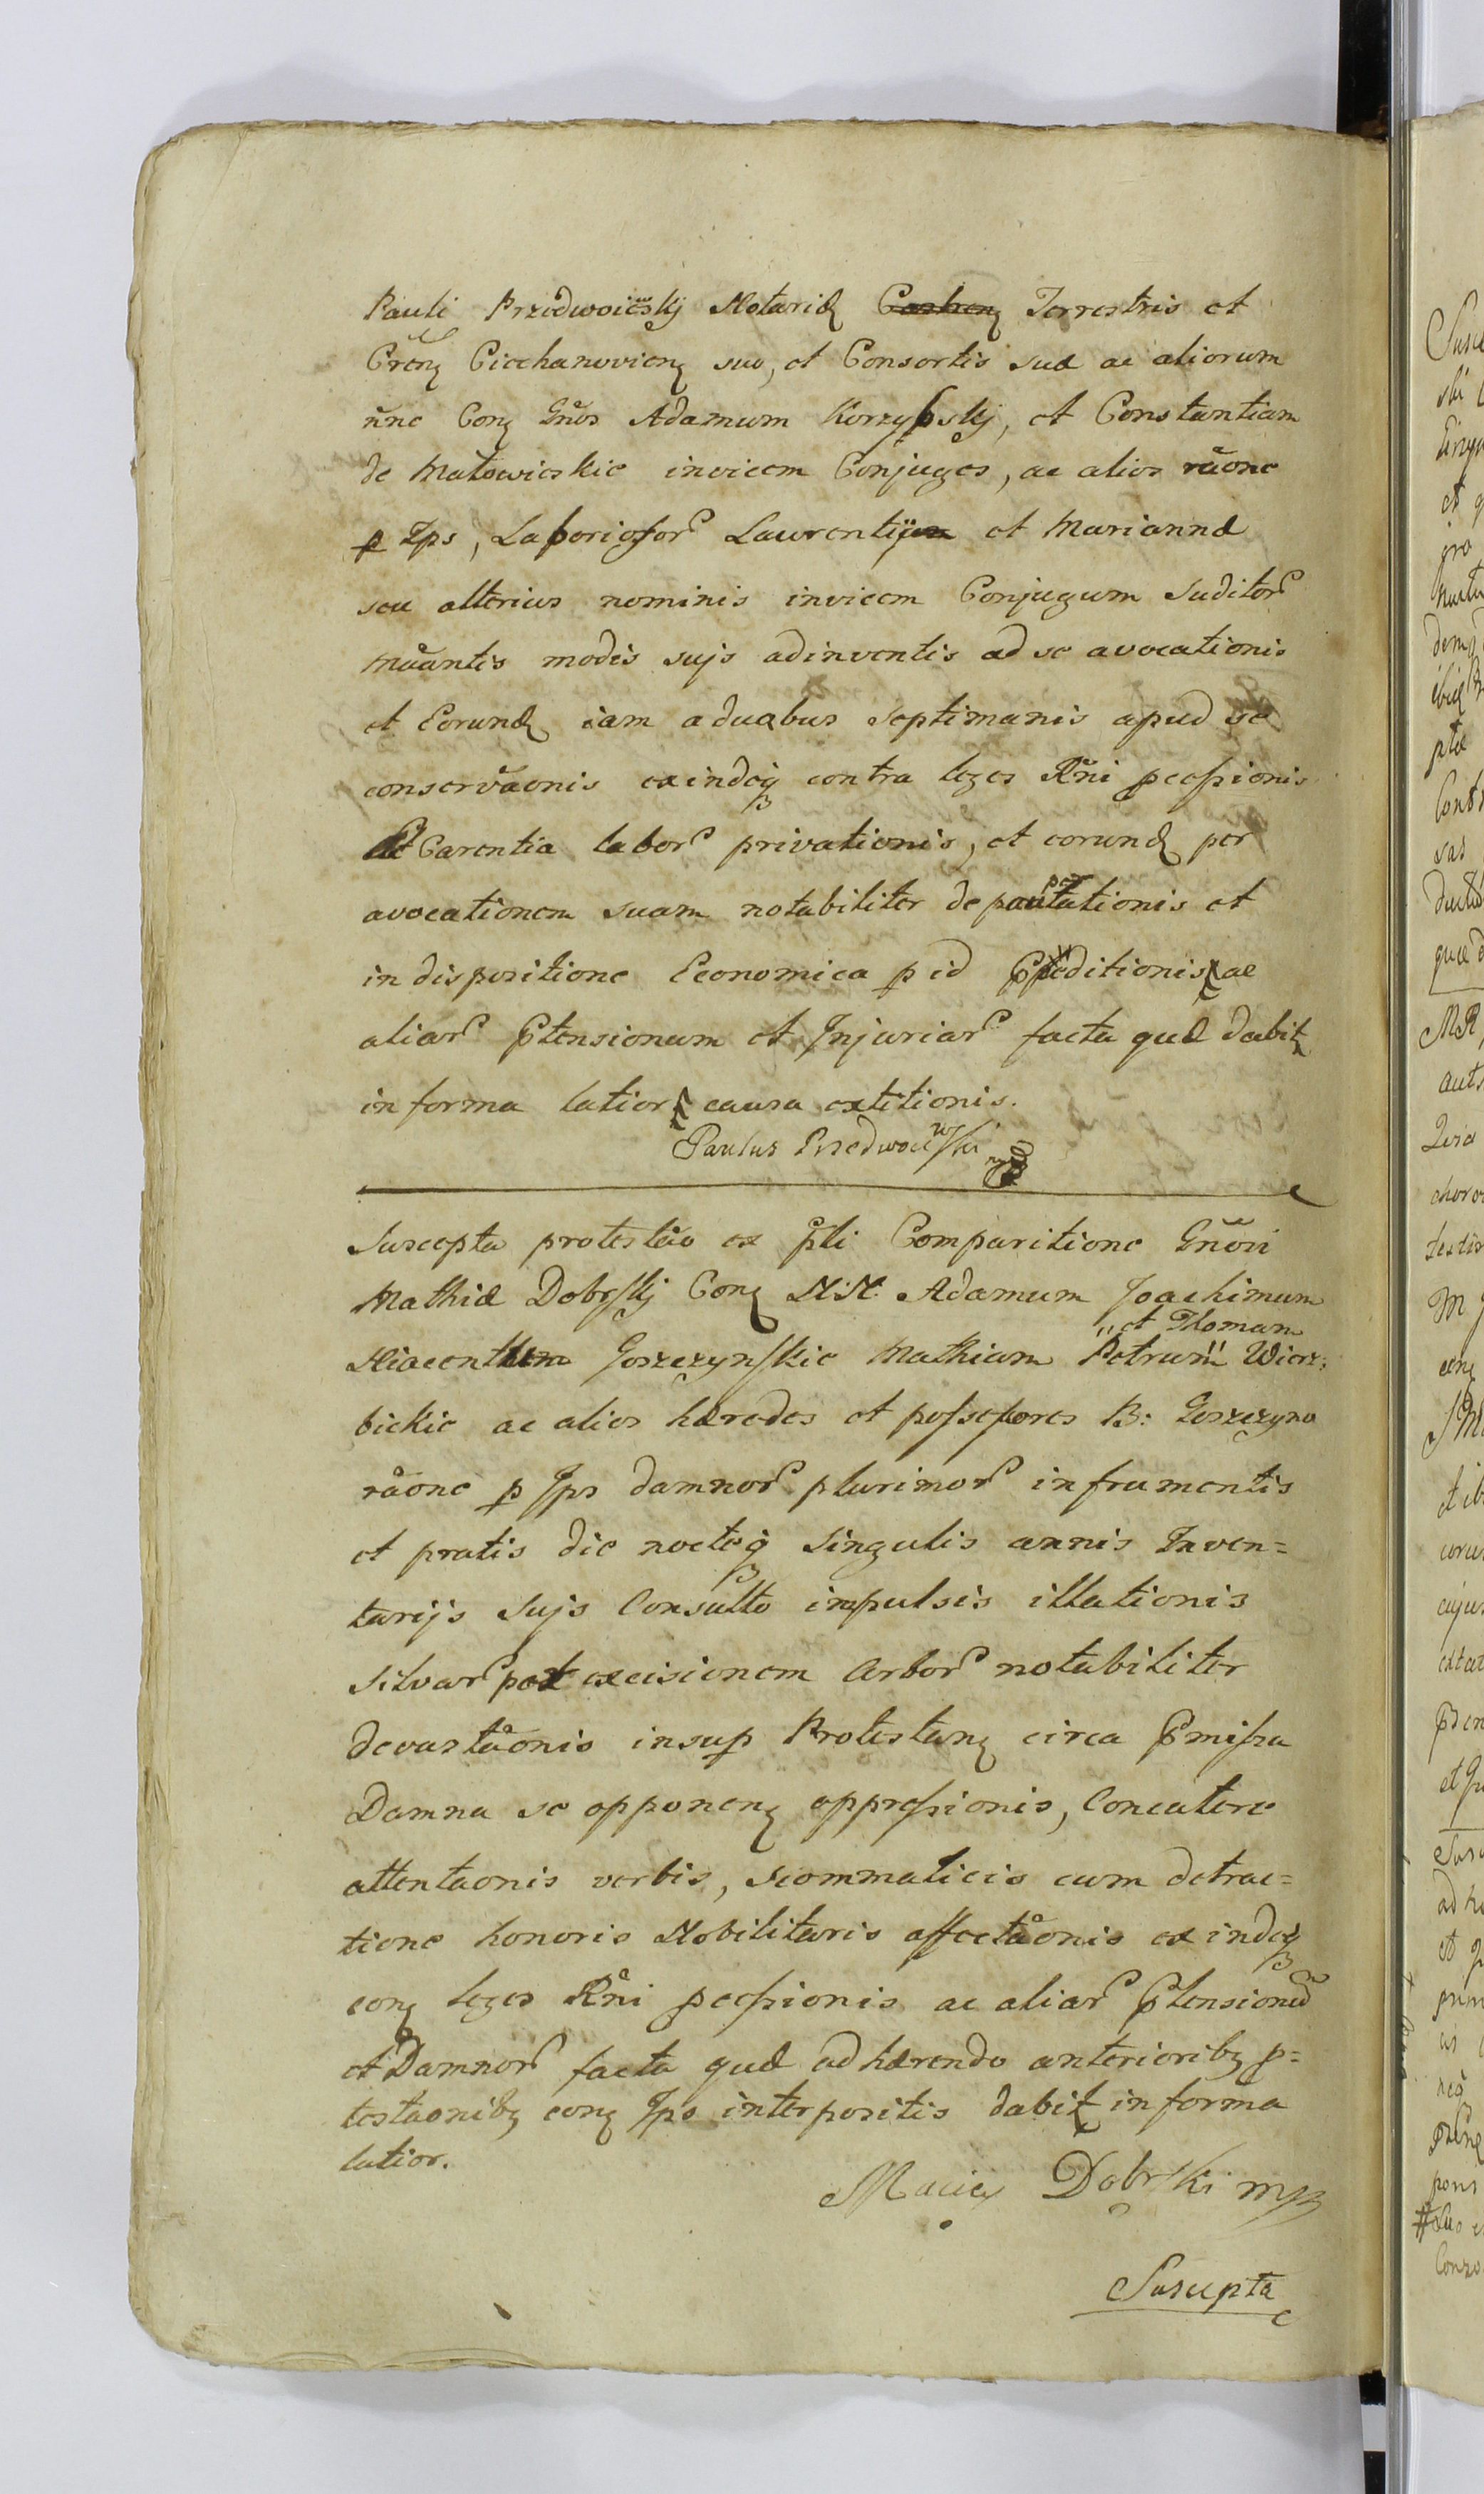 Pauli Przedwoiewskij Notarij Castren Terrestris et
Crens Ciechanoviens suo, et Consortis suæ ac aliorum
nne Cons Gnos Adamum Korzybskij, et Constantiam
de Małowieskie invicem Conjuges, ac alios raone
p Ips, Laboriosor Laurentij et Mariannæ
seu alterius nominis invicem Conjugum Suditor
muantis modis sujs adinventis ad se avocationis
et Eorund iam a duabus septimanis apud se
conservaonis exindeq contra leges Rni pcessionis
et Carentia labor privationis, et eorund per
avocationem suam notabiliter depauperationis et
in dispositione Economica p id Epeditionis ac
aliar Ptensionum et Injuriar facta quæ dabit
in forma latiori causa extitionis.
Paulus Przedwoiewski mp
Suscepta protestao ex psli Comparitione Gnosi
Mathiæ Dobrskij Cons N.N. Adamum Joachimum
Hiacenthum Goszczynskie Mathiam Petrum "et Thomam" Wierz:
bickie ac alios hæredes et possessores B: Goszczyno
raone p Ips damnor plurimor in frumentis
et pratis die nocteq singulis annis Inven=
tarijs sujs Consulto impulsis illationis
silvar post excisionem Arbor notabiliter
devastaonis insup Protestans circa Pmissa
Damna se opponens oppressionis, Concutere
attentaonis verbis, scommaticis cum detrac=
tione honoris Nobilitaris affectaonis ex indeq
cons leges Rni pcessionis ac aliar Ptensionu
et Damnor facta quæ adhærendo anterioribq p=
testaonibq cons Ips interpositis dabit in forma
latior.
Maciej Dobrski mp
Suscepta